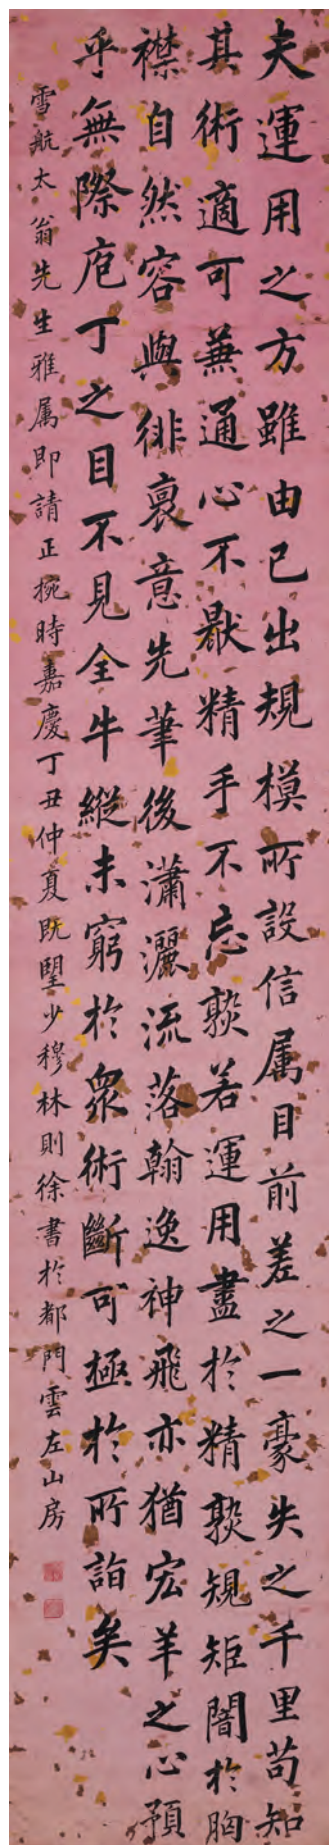 夫運用之方雖由己出規模所設信属目前差之一豪失之千里苟知
其術適可兼通心不猒精手不忘𤍨若運用盡於精𤍨規矩闇於胸
襟自然容與徘裵意先筆後瀟灑流落翰逸神飛亦猶宏羊之心預
乎無際庖丁之目不見全牛縱未窮於衆術斷可極於所詣矣
雪航太翁先生雅属即請正捥時嘉慶丁丑仲夏既朢少穆林則徐書於都門雲左山房